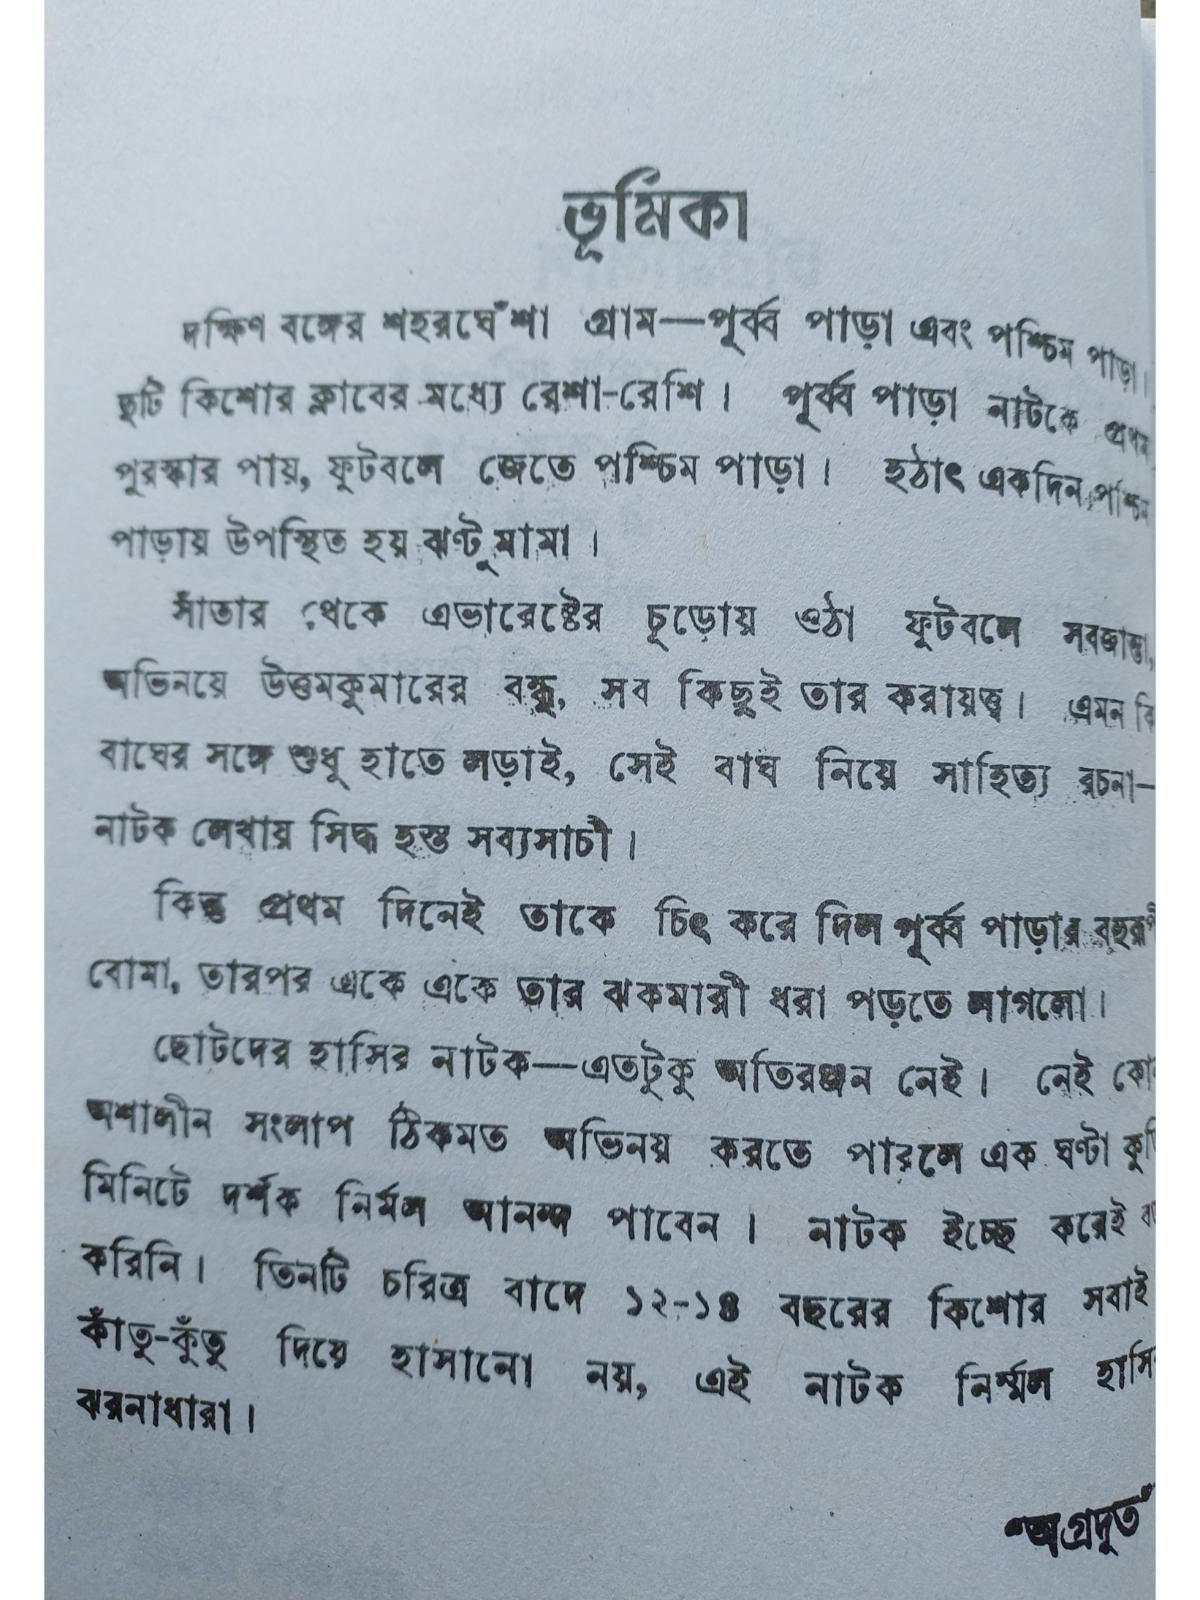 ভূমিকা
দক্ষিণ বঙ্গের শহরঘেঁশা গ্রাম—পূর্ব্ব পাড়া এবং পশ্চিম পাড়া।
দুটি কিশোর ক্লাবের মধ্যে রেশা-রেশি। পূর্ব্ব পাড়া নাটকে প্রথম
পুরস্কার পায়, ফুটবলে জেতে পশ্চিম পাড়া। হঠাৎ একদিন পশ্চিম
পাড়ায় উপস্থিত হয় ঝণ্টু মামা।
সাঁতার থেকে এভারেষ্টের চূড়োয় ওঠা ফুটবলে সবজান্তা,
অভিনয়ে উত্তমকুমারের বন্ধু, সব কিছুই তার করায়ত্ত্ব। এমন কি
বাঘের সঙ্গে শুধু হাতে লড়াই, সেই বাঘ নিয়ে সাহিত্য রচনা—
নাটক লেখায় সিদ্ধ হস্ত সব্যসাচী।
কিন্তু প্রথম দিনেই তাকে চিৎ করে দিল পূর্ব্ব পাড়ার
বোমা, তারপর একে একে তার ঝকমারী ধরা পড়তে লাগলো।
ছোটদের হাসির নাটক—এতটুকু অতিরঞ্জন নেই। নেই
অশালীন সংলাপ ঠিকমত অভিনয় করতে পারলে এক ঘণ্টা
মিনিটে দর্শক নির্মল আনন্দ পাবেন। নাটক ইচ্ছে করেই
করিনি। তিনটি চরিত্র বাদে ১২-১৪ বছরের কিশোর সবাই
কাঁতু-কুঁতু দিয়ে হাসানো নয়, এই নাটক নির্ম্মল
ঝরনাধারা।
“অগ্রদূত”